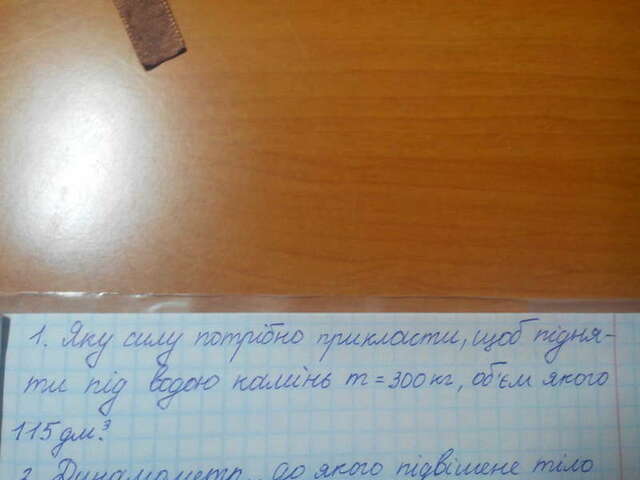 1. Яку силу потрібно прикласти, щоб підня-
ти під водою камінь m = 300 кг, об'єм якого
115 дм³?
2. Динамометр, до якого підвішене тіло